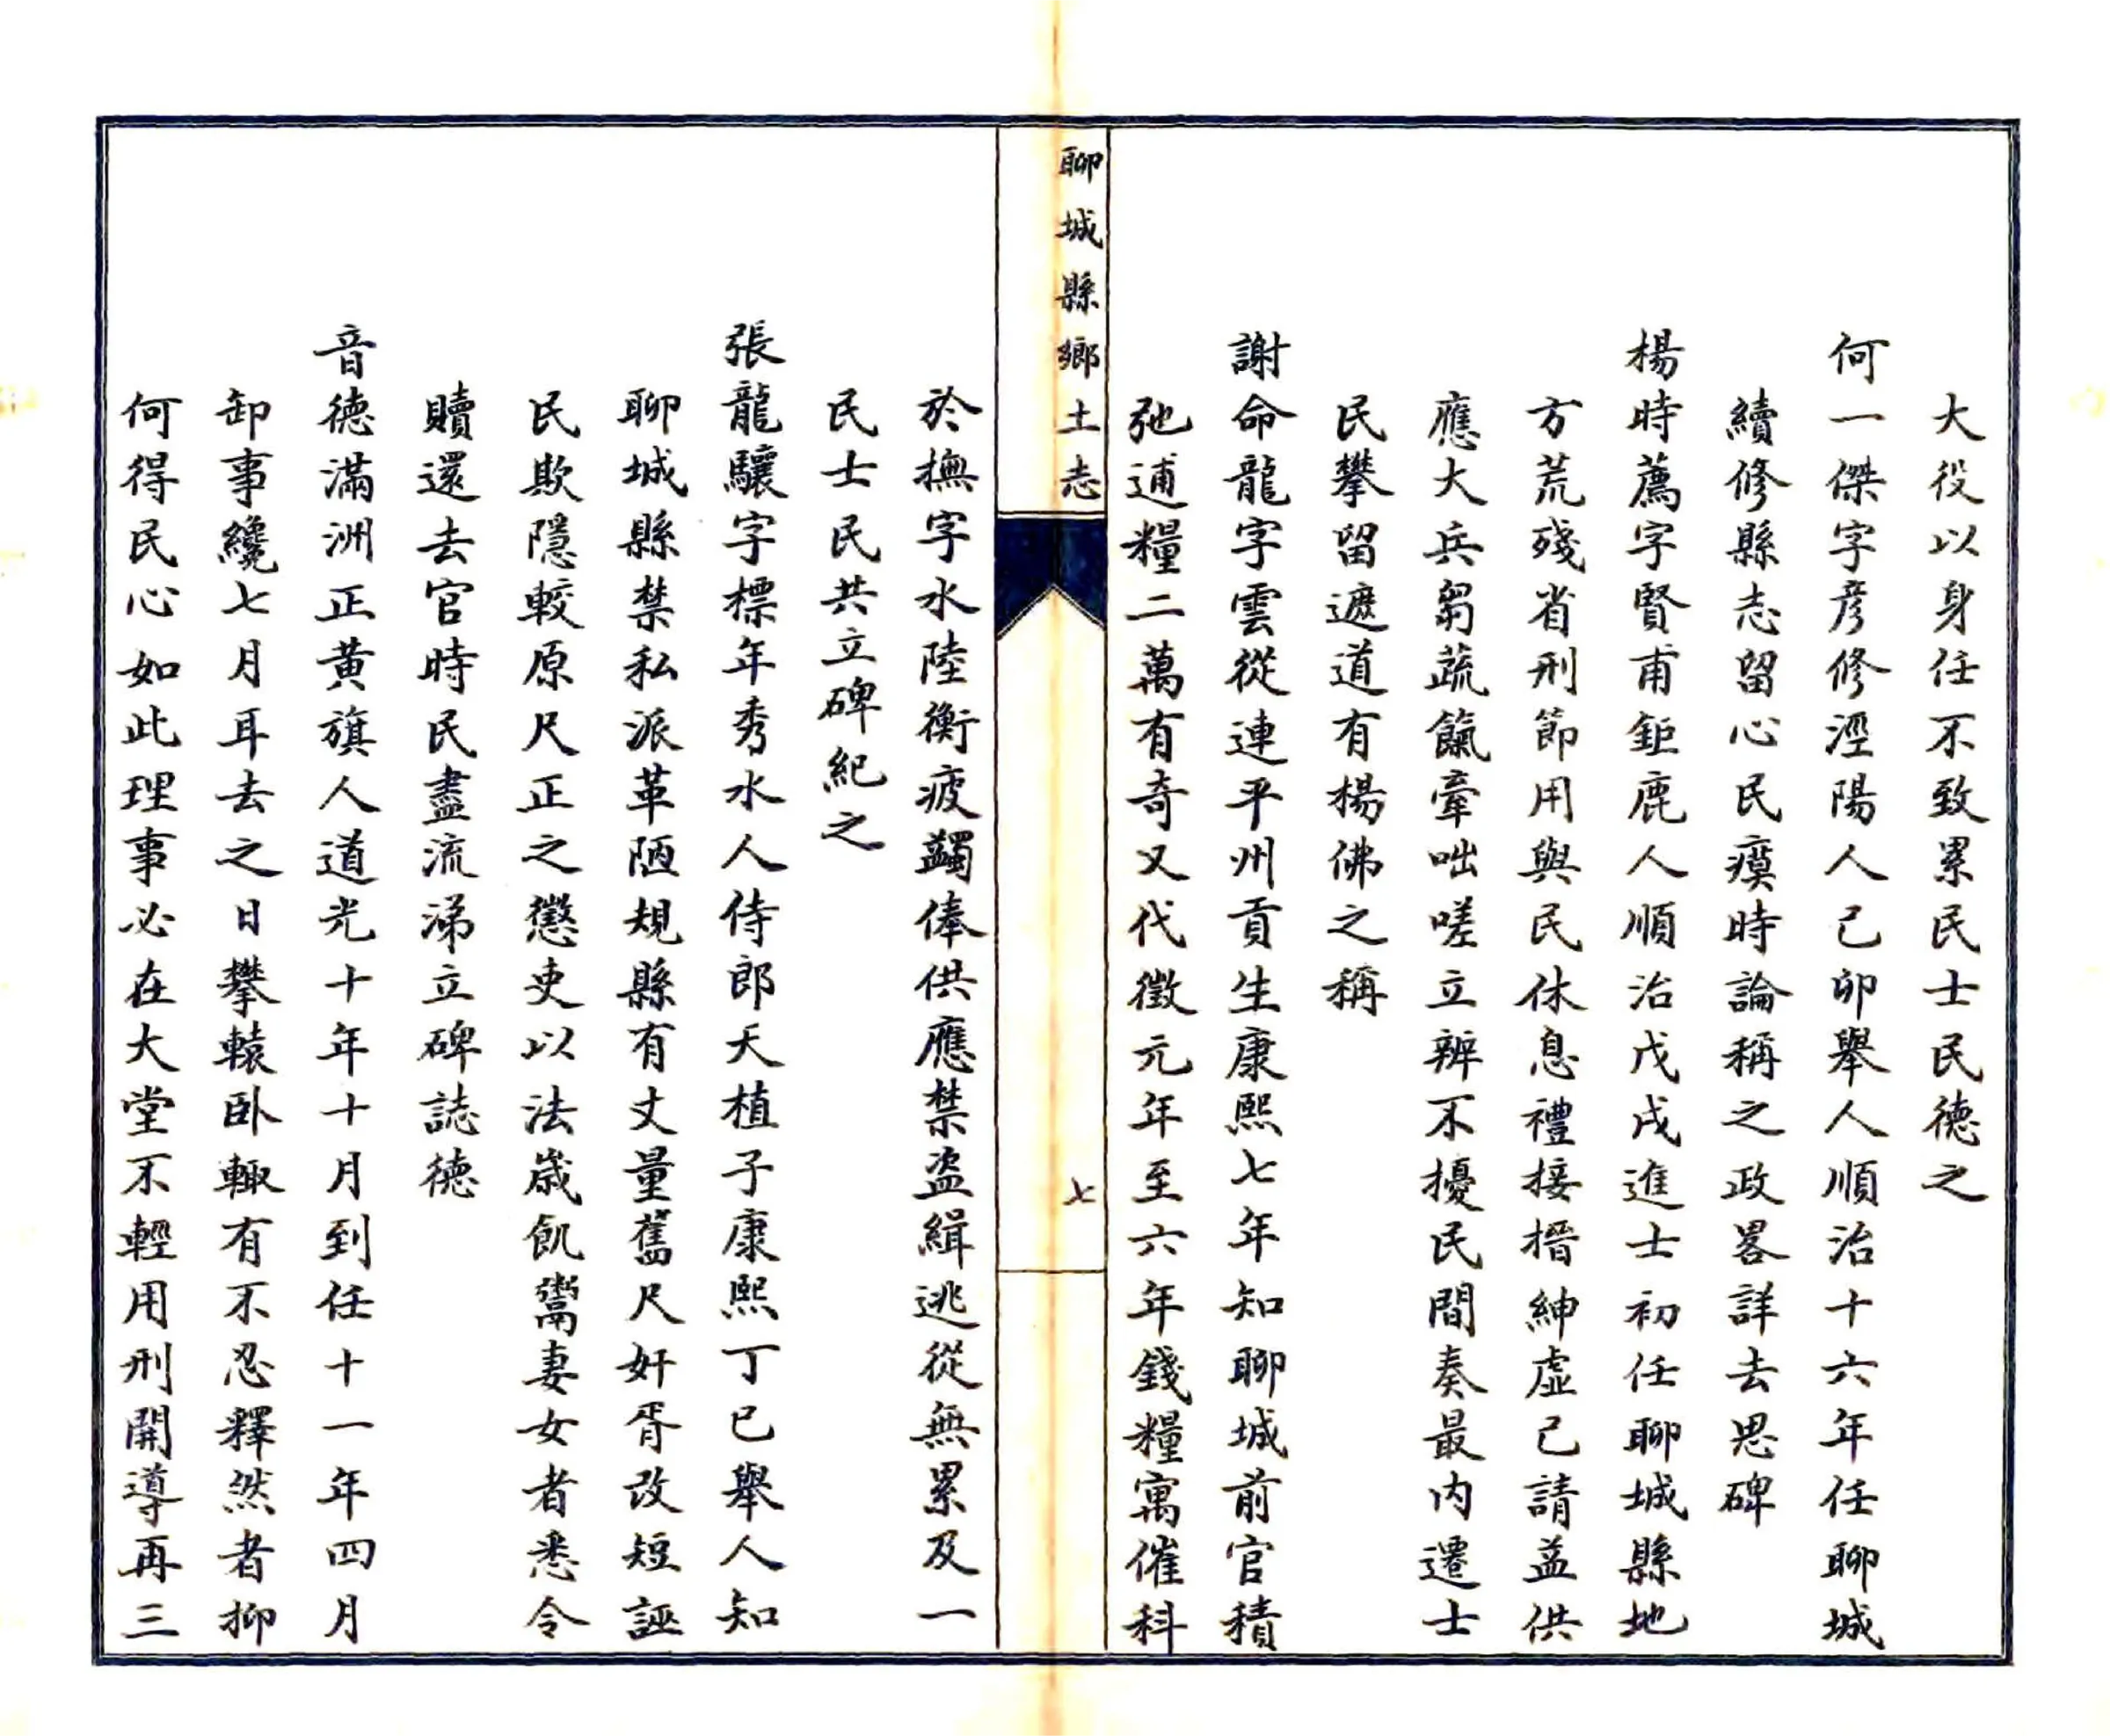 大役以身任不致累民士民德之
何一傑字彦修涇陽人己卯舉人順治十六年任聊城
續修縣志留心民瘼時論稱之政畧詳去思碑
楊時薦字賢甫鉅鹿人順治戊戌進士初任聊城縣地
方荒殘省刑節用與民休息禮接搢紳虛己請益供
應大兵芻蔬餼牽咄嗟立辨不擾民間奏最内遷士
民攀留遮道有楊佛之稱
謝命龍字雲從連平州貢生康熙七年知聊城前官積
弛逋糧二萬有奇又代徵元年至六年錢糧寓催科
聊城縣鄉土志
七
於撫字水陸衝疲蠲俸供應禁盗緝逃從無累及一
民士民共立碑紀之
張龍驤字標年秀水人侍郎天植子康熙丁已舉人知
聊城縣禁私派革陋規縣有丈量舊尺奸胥改短誣
民欺隱較原尺正之懲吏以法歲飢鬻妻女者悉令
贖還去官時民盡流涕立碑誌德
音德滿洲正黃旗人道光十年十月到任十一年四月
卸事纔七月耳去之日攀轅卧輙有不忍釋然者抑
何得民心如此理事必在大堂不輕用刑開導再三